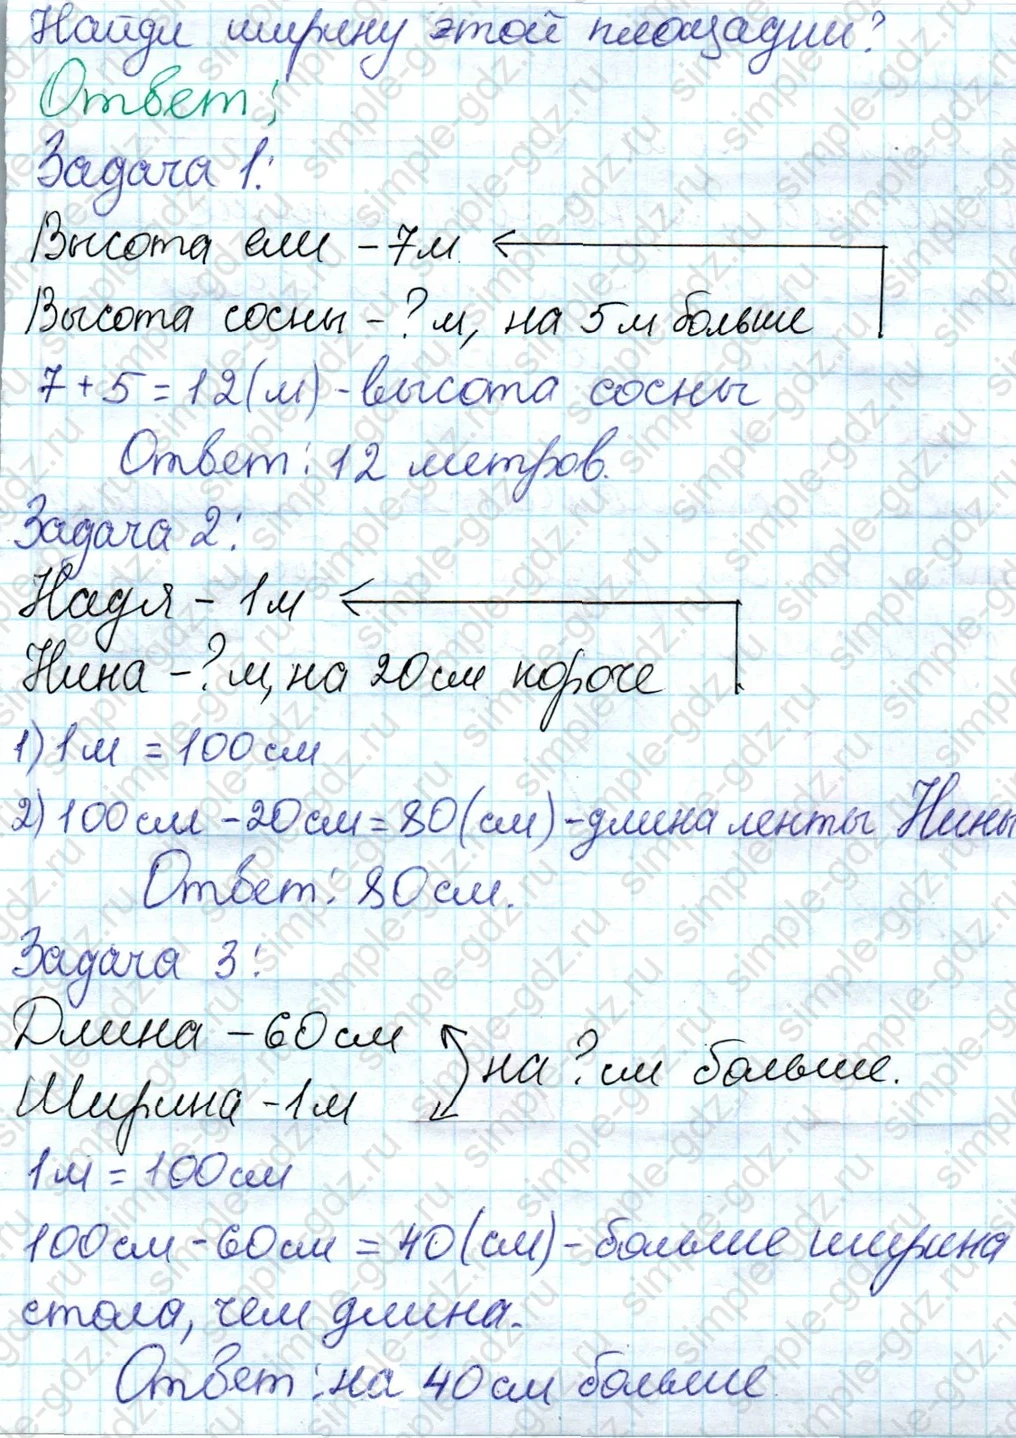 Найди ширину этой площадки?
Ответ:
Задача 1:
Высота ели - 7м
Высота сосны - ? м, на 5м больше
7 + 5 = 12(м) - высота сосны
Ответ: 12 метров.
Задача 2:
Надя - 1м
Нина - ? м, на 20см короче
1) 1м = 100см
2) 100см - 20см = 80(см) - длина ленты Нины
Ответ: 80см.
Задача 3:
Длина - 60см
на ? см больше.
Ширина - 1м
1м = 100см
100см - 60см = 40(см) - больше ширина
стола, чем длина.
Ответ: на 40см больше
simple-gdz.ru